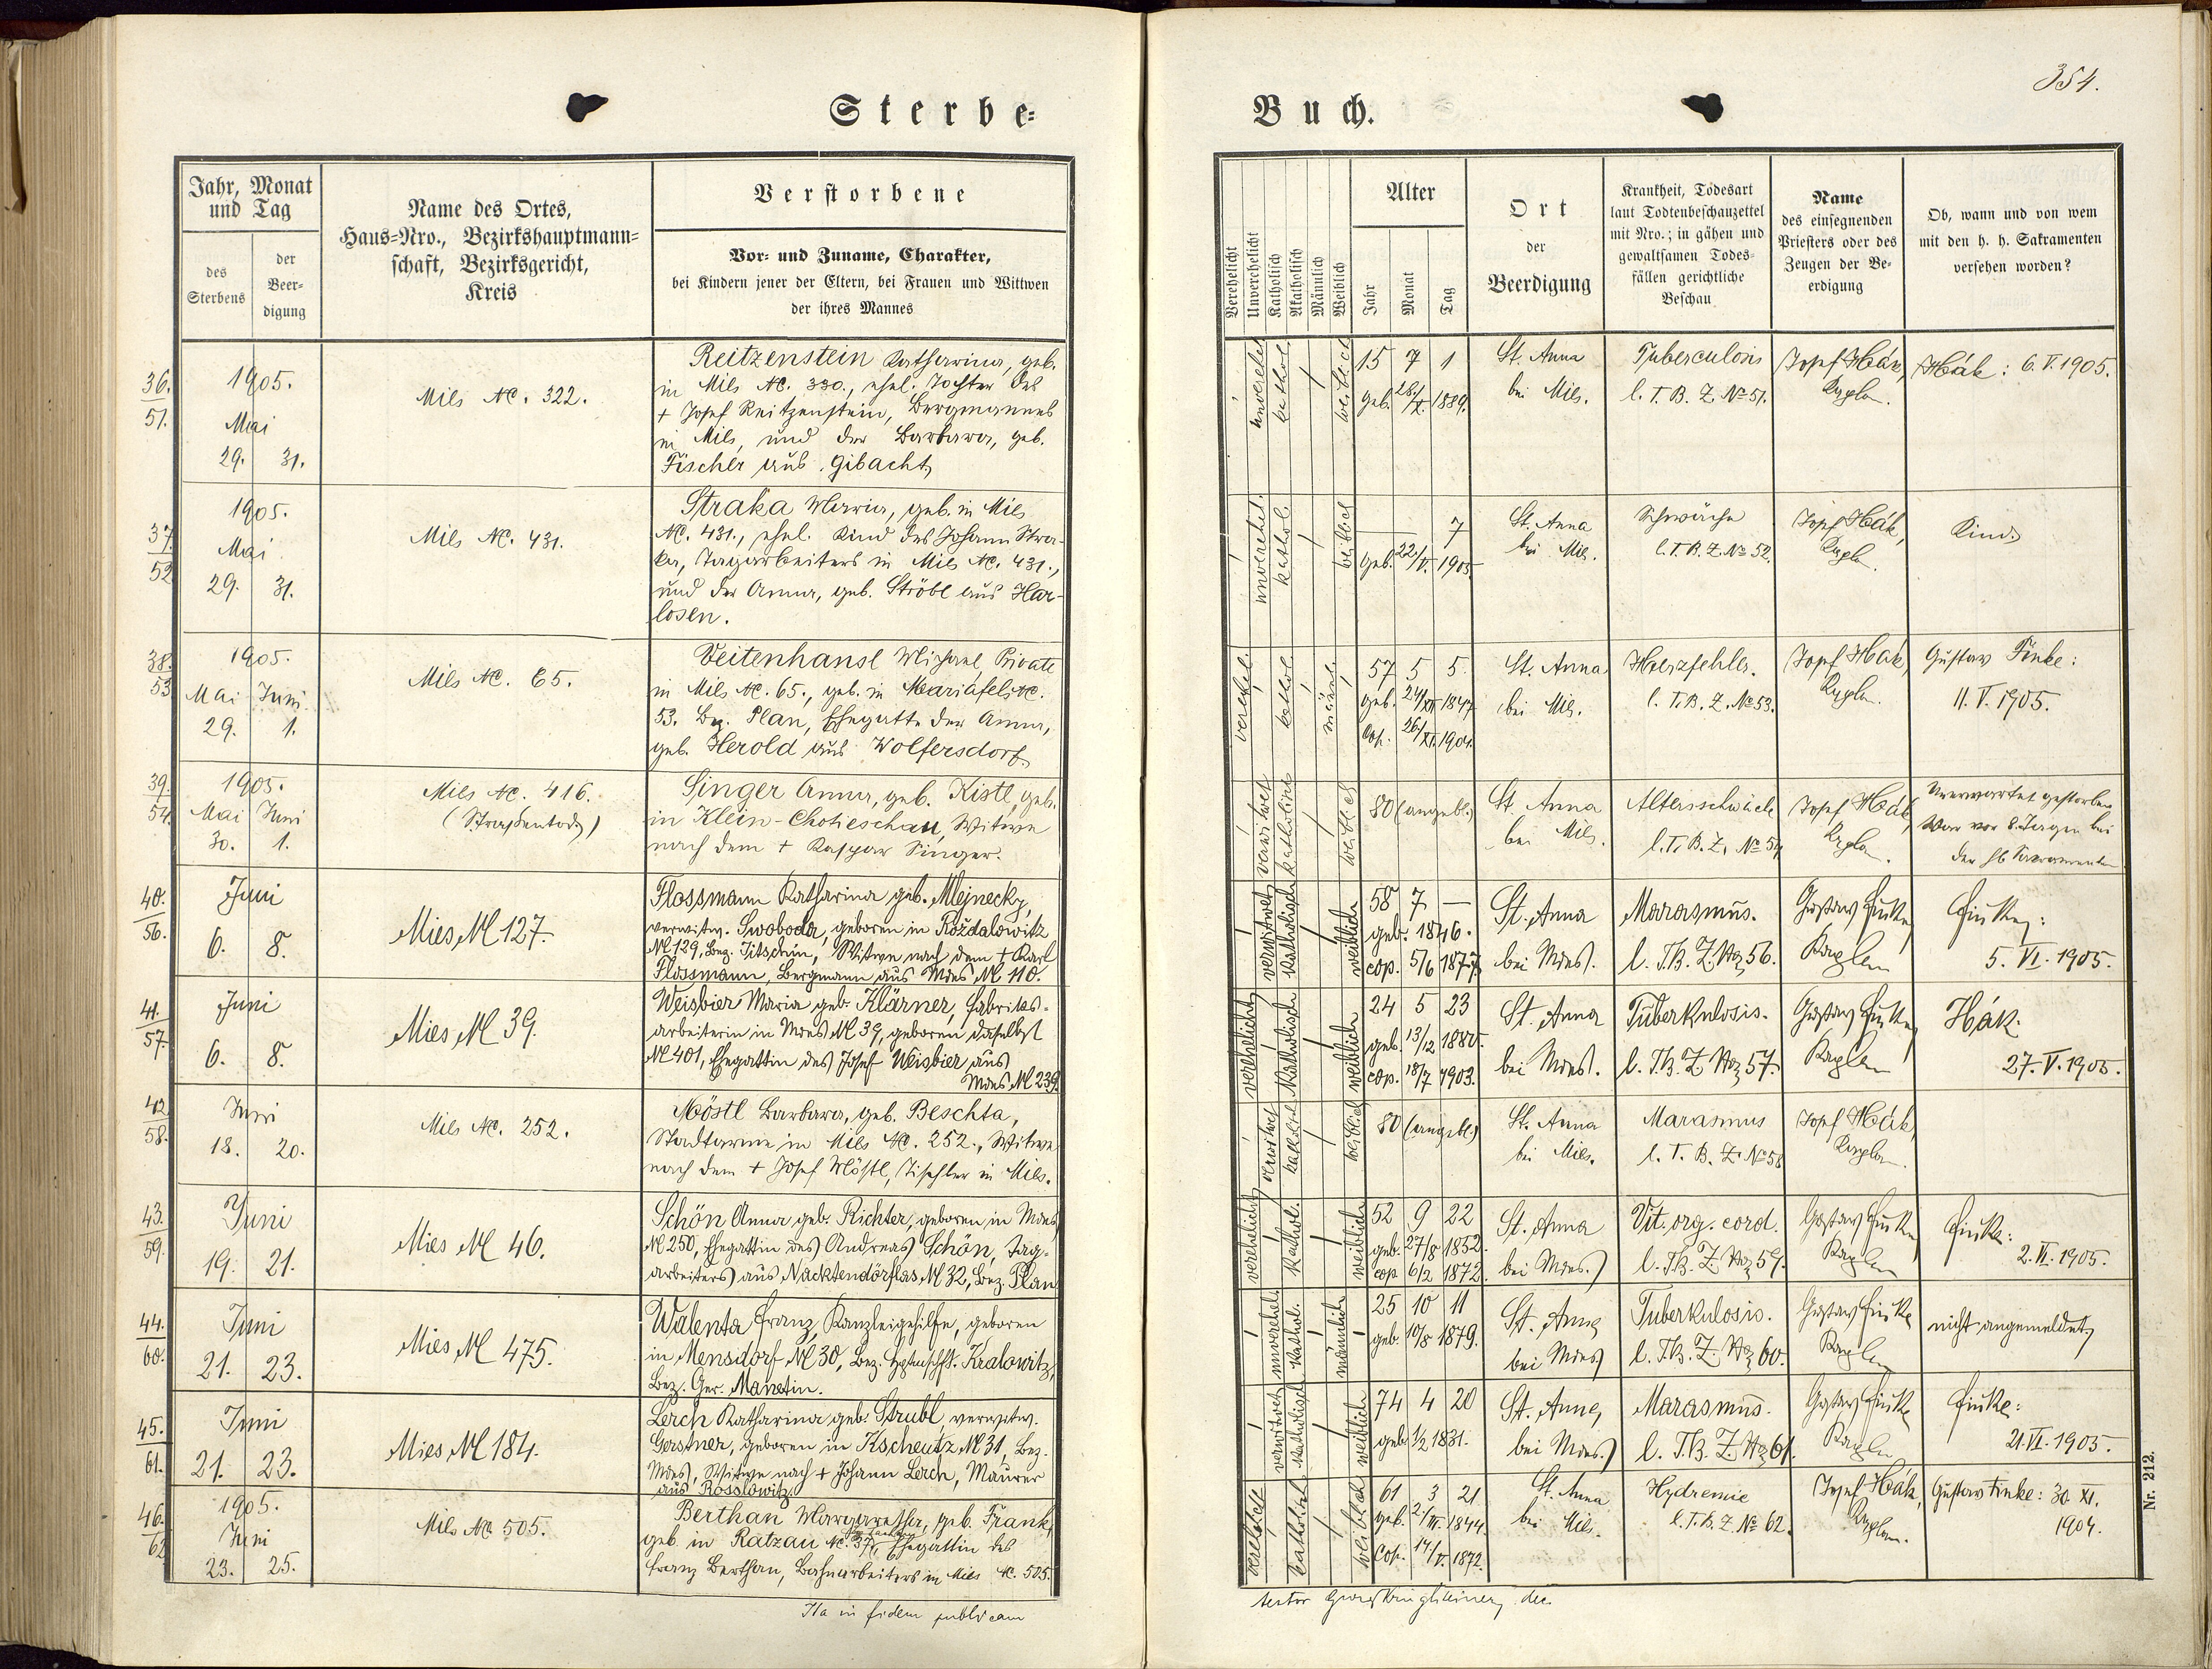 354.
Sterbe-
Buch.
Jahr, Monat
und Tag
des
Sterbens
der
Beer-
digung
Name des Ortes,
Haus-Nro., Bezirkshauptmann-
schaft, Bezirksgericht,
Kreis
Verstorbene
Vor- und Zuname, Charakter,
bei Kindern jener der Eltern, bei Frauen und Wittwen
der ihres Mannes
Verehelicht
Unverehelicht
Katholisch
Akatholisch
Männlich
Weiblich
Alter
Jahr
Monat
Tag
Ort
der
Beerdigung
Krankheit, Todesart
laut Todtenbeschauzettel
mit Nro.; in gähen und
gewaltsamen Todes-
fällen gerichtliche
Beschau
Name
des einsegnenden
Priesters oder des
Zeugen der Be-
erdigung
Ob, wann und von wem
mit den h. h. Sakramenten
versehen worden?
36.
51.
1905.
Mai
29. 31.
Mies NC. 322.
Reitzenstein Katharina, geb.
in Mies NC. 330., ehel. Tochter des
+ Josef Reitzenstein, Bergmannes
in Mies, und der Barbara, geb.
Fischer aus Gibacht,
unverehel.
kathol.
weiblich
15 7 1
geb. 28/X. 1889.
St. Anna
bei Mies.
Tuberculosis
l. T. B. Z. No 51.
Josef Hák,
Kaplan.
Hák: 6. V. 1905.
37.
52
1905.
Mai
29. 31.
Mies NC. 431.
Straka Maria, geb. in Mies
NC. 431., ehel. Kind des Johann Stra-
ka, Tagarbeiters in Mies NC. 431.,
und der Anna, geb. Ströbl aus Har-
losen.
unverehel.
kathol.
weiblich
7
geb. 22/V. 1905
St. Anna
bei Mies.
Schwäche
l. T. B. Z. No 52.
Josef Hák,
Kapla.
Kind.
38.
53
1905.
Mai Juni
29. 1.
Mies NC. 65.
Veitenhansl Michael Private
in Mies NC. 65., geb. in Mariafels NC.
53. Bez. Plan, Ehegatte der Anna,
geb. Herold aus Wolfersdorf.
verehel.
kathol.
männl.
57 5 5
geb. 24/XII 1847
cop. 26/XI. 1901.
St. Anna
bei Mies.
Herzfehler.
l. T. B. Z. No 53.
Josef Hák,
Kaplan.
Gustav Finke:
11. V. 1905.
39.
54.
1905.
Mai Juni
30. 1.
Mies NC. 416.
Singer Anna, geb. Kistl, geb.
in Klein-Chotieschau, Witwe
nach dem + Kaspar Singer.
verwitwet
katholisch
weiblich
80 (angebl.)
St. Anna
bei Mies.
Altersschwäche
l. T. B. Z. No 54
Josef Hák,
Kaplan.
Unerwartet gestorben
War vor 8 Tagen bei
den hl. Sacramenten
40.
56.
Juni
6. 8.
Mies N 127.
Flossmann Katharina geb. Mlejnecky,
verwitw. Swoboda, geboren in Rožďalowitz
N 129, Bez. Jitschin, Witwe nach dem + Karl
Flossmann, Bergmann aus Mies N 110.
verwitwet
katholisch
weiblich
58 7 —
geb. 1846.
cop. 5/6 1877
St. Anna
bei Mies.
Marasmus.
l. T. B. Z. No 56.
Gustav Finke,
Kaplan
Finke:
5. VI. 1905.
41.
57.
Juni
6. 8.
Mies N 39.
Weisbier Maria geb. Klärner, Fabriks-
arbeiterin in Mies N 39, geboren daselbst
N 401, Ehegattin des Josef Weisbier aus
Mies N 239.
verehelicht
katholisch
weiblich
24 5 23
geb. 13/12 1880.
cop. 18/7 1903.
St. Anna
bei Mies.
Tuberkulosis.
l. T. B. Z. No 57.
Gustav Finke,
Kaplan
Hák.
27. V. 1905.
42.
58.
Juni
18. 20.
Mies NC. 252.
Möstl Barbara, geb. Beschta,
Stadtarme in Mies NC. 252., Witwe
nach dem + Josef Möstl, Tischler in Mies.
verwitwet
katholisch
weiblich
80 (angebl.)
St. Anna
bei Mies.
Marasmus
l. T. B. Z. No 58
Josef Hák,
Kaplan.
43.
59.
Juni
19. 21.
Mies N 46.
Schön Anna geb. Richter, geboren in Mies
N 250, Ehegattin des Andreas Schön, Tag-
arbeiters aus Nacktendörflas N 32, Bez. Plan
verehelicht
kathol.
weiblich
52 9 22
geb. 27/8 1852.
cop 6/2 1872.
St. Anna
bei Mies.
Vit. org. cord.
l. T. B. Z. No 59.
Gustav Finke,
Kaplan
Finke:
2. VI. 1905.
44.
60.
Juni
21. 23.
Mies N 475.
Walenta Franz, Kanzleigehilfe, geboren
in Mensdorf N 30, Bez. Hptmschft. Kralowitz,
Bez. Ger. Manetin.
unverehel.
kathol.
männlich
25 10 11
geb. 10/8 1879.
St. Anna
bei Mies
Tuberkulosis.
l. T. B. Z. No 60.
Gustav Finke
Kaplan
nicht angemeldet,
45.
61.
Juni
21. 23.
Mies N 184.
Lerch Katharina geb. Strubl, verwitw.
Gerstner, geboren in Kscheutz N 31, Bez.
Mies, Witwe nach + Johann Lerch, Maurer
aus Rosslowitz.
verwitwet
katholisch
weiblich
74 4 20
geb. 1/2 1831.
St. Anna,
bei Mies.
Marasmus.
l. T. B. Z. No 61.
Gustav Finke
Kaplan
Finke:
21. VI. 1905.
46.
62
1905.
Juni
23. 25.
Mies NC. 505.
Berthan Margaretha, geb. Frank,
geb. in Ratzau NC. 37, Ehegattin des
Franz Berthan, Bahnarbeiters in Mies NC. 505.
verehelicht
katholisch
weiblich
61 3 21
geb. 2/III. 1844.
cop. 14/V. 1872
St. Anna
bei Mies.
Hydremie
l. T. B. Z. No 62.
Josef Hák,
Kaplan.
Gustav Finke: 30. XI.
1904.
Ita in fidem publicam
Nr. 212.